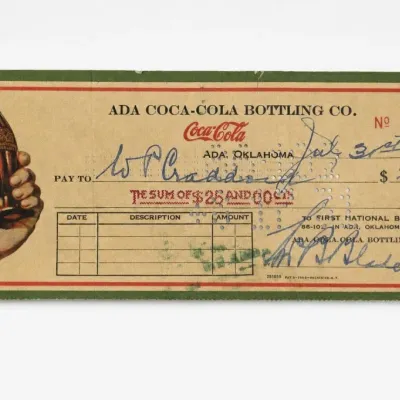 ADA COCA-COLA BOTTLING CO.
Coca-Cola
Nº
ADA, OKLAHOMA
PAY TO W P Craddock $
THE SUM OF $25 AND 00 CTS
DATE DESCRIPTION AMOUNT
TO FIRST NATIONAL B
IN ADA, OKLAHOM
ADA COCA COLA BOTTLIN